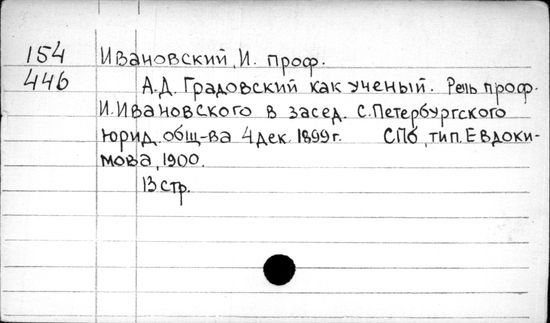 154 Ивановский, И. проф.
446 А.Д. Градовский как ученый. Речь проф.
И.Ивановского в засед. С.Петербургского
юрид. общ-ва 4 дек. 1899 г. СПб, тип. Евдоки-
мова, 1900.
13 стр.